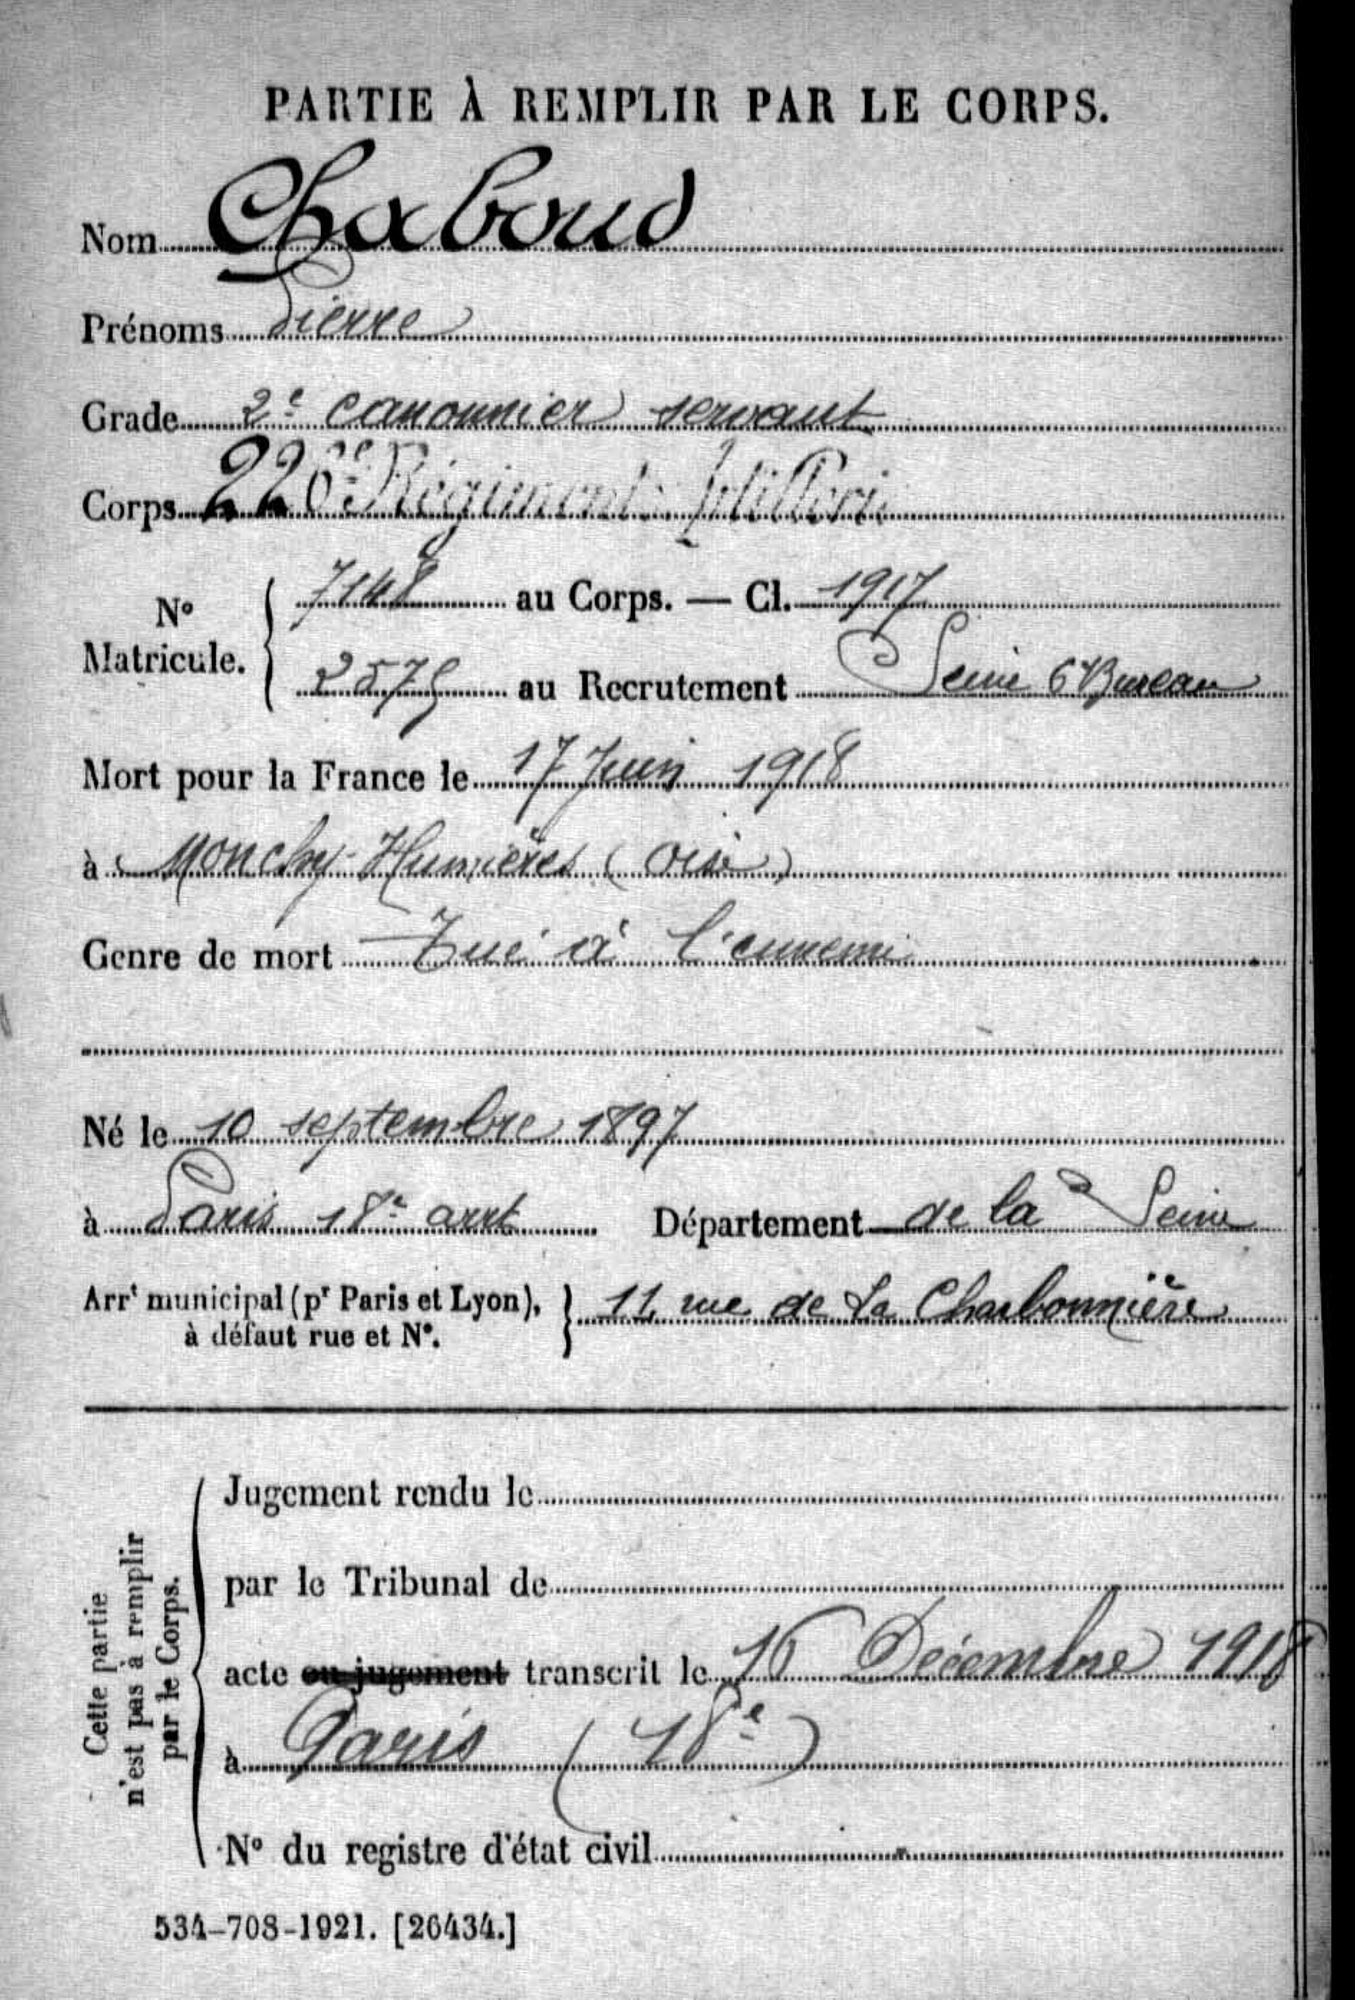 PARTIE À REMPLIR PAR LE CORPS.
Nom Chaboud
Prénoms Pierre
Grade 2e canonnier servant
Corps 226e Régiment Artillerie
No Matricule. 7148 au Corps. — Cl. 1917
2575 au Recrutement Seine 6e Bureau
Mort pour la France le 17 Juin 1918
à Monchy-Humières (Oise)
Genre de mort Tué à l'ennemi
Né le 10 septembre 1897
à Paris 18e arrt Département de la Seine
Arrt municipal (pr Paris et Lyon), 11, rue de La Charbonnière
à défaut rue et No.
Cette partie
n'est pas à remplir
par le Corps.
Jugement rendu le
par le Tribunal de
acte ou jugement transcrit le 16 Décembre 1918
à Paris (18e)
No du registre d'état civil
534-708-1921. [26434.]